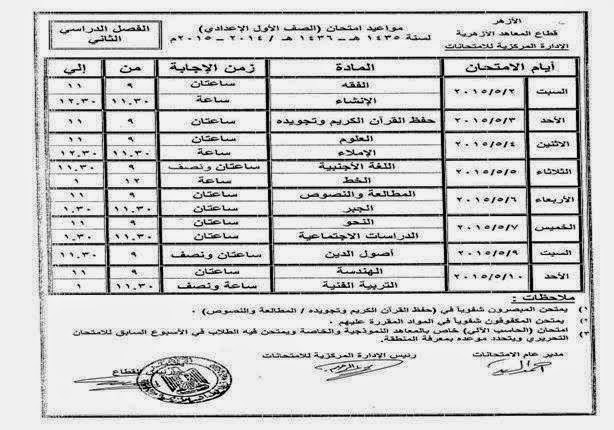 الأزهر
قطاع المعاهد الأزهرية
الإدارة المركزية للامتحانات
مواعيد امتحان (الصف الأول الإعدادي)
لسنة ١٤٣٥ هـ - ١٤٣٦ هـ / ٢٠١٤ - ٢٠١٥م
الفصل الدراسي
الثاني
أيام الامتحان المادة زمن الإجابة من إلي
السبت ٢٠١٥/٥/٢ الفقه ساعتان ٩ ١١
الإنشاء ساعة ١١.٣٠ ١٢.٣٠
الأحد ٢٠١٥/٥/٣ حفظ القرآن الكريم وتجويده ساعتان ٩ ١١
الاثنين ٢٠١٥/٥/٤ العلوم ساعتان ٩ ١١
الإملاء ساعة ١١.٣٠ ١٢.٣٠
الثلاثاء ٢٠١٥/٥/٥ اللغة الأجنبية ساعتان ونصف ٩ ١١.٣٠
الخط ساعة ١٢ ١
الأربعاء ٢٠١٥/٥/٦ المطالعة والنصوص ساعتان ٩ ١١
الجبر ساعتان ١١.٣٠ ١.٣٠
الخميس ٢٠١٥/٥/٧ النحو ساعتان ٩ ١١
الدراسات الاجتماعية ساعتان ١١.٣٠ ١.٣٠
السبت ٢٠١٥/٥/٩ أصول الدين ساعتان ونصف ٩ ١١.٣٠
الأحد ٢٠١٥/٥/١٠ الهندسة ساعتان ٩ ١١
التربية الفنية ساعة ونصف ١١.٣٠ ١
ملاحظات :
١) يمتحن المبصرون شفوياً في (حفظ القرآن الكريم وتجويده / المطالعة والنصوص) .
٢) يمتحن المكفوفون شفوياً في المواد المقررة عليهم .
٣) امتحان (الحاسب الآلي) خاص بالمعاهد النموذجية والخاصة ويمتحن فيه الطلاب في الأسبوع السابق للامتحان
التحريري ويتحدد موعده بمعرفة المنطقة.
مدير عام الامتحانات رئيس الإدارة المركزية للامتحانات القطاع